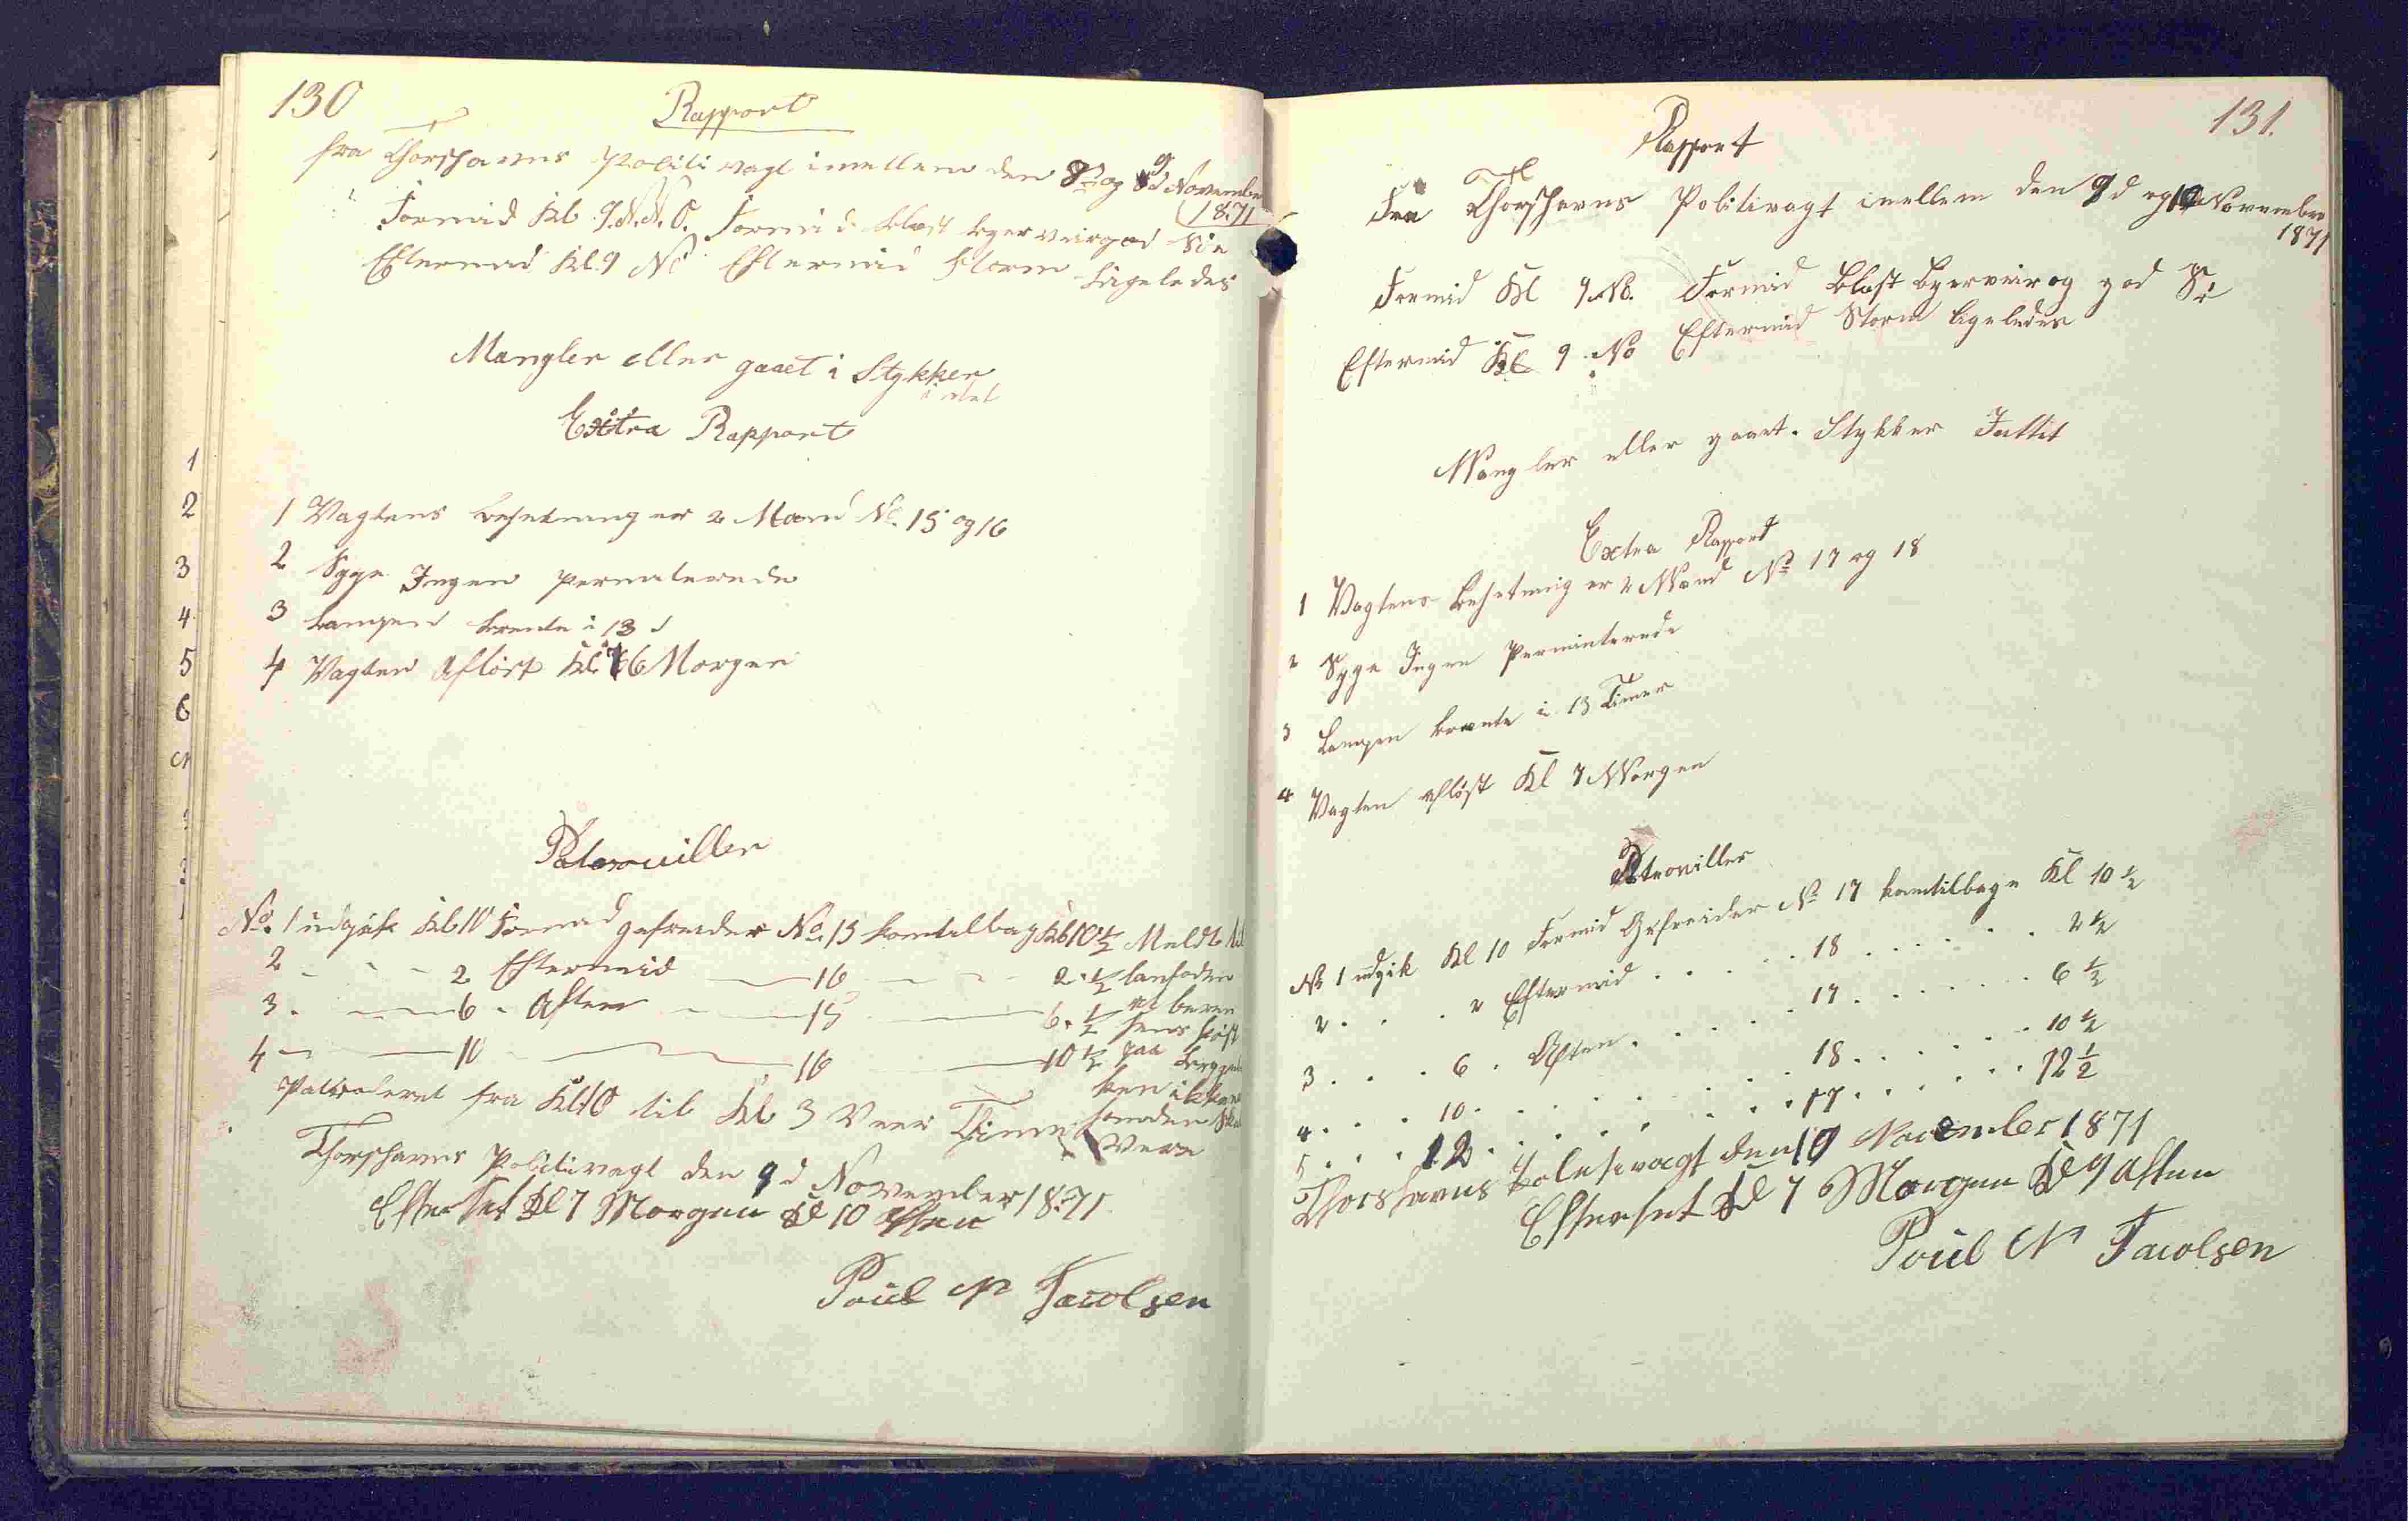 130
Rapport
fra Thorshavns Politivagt imellem den 8de og 9d November
1871
Formid Kl. 9. N.N.O. Formid blæst bygerveir god Söe
Eftermid Kl. 9 No Eftermid storm ligeledes
Mangler eller gaaet i Stykker
intet
Extra Rapport
1 Vagtens besetning er 2 Mand No. 15 og 16
2 Syge Ingen permaterede
3 Lampen brente i 13
4 Vagten aflöst Kl 6 Morgen
Paterouiller
No. 1 udgik Kl 10 Formid gefreider No. 15 kom tilbag Kl 10 1/2 Meldt
2 - - - 2 Eftermid - 16 - - - 2 1/2
3 - - - 6 - Aften - 15 - 6 1/2
4 - - 10 - 16 - 10 1/2 paa
Patroleret fra Kl 10 til Kl 3 Veer Thime
være
Thorshavns Politivagt den 9d November 1871
Efterset Kl 7 Morgen Kl 10 Aften
Poul N Jacobsen
1
2
3
4
5
6
131.
Rapport
Fra Thorshavns Politivagt imellem den 9d og 10 November
1871
Formid Kl 9 No. Formid Blæst Bygerveir og god Sö
Eftermid Kl 9 No Eftermid Storm ligeledes
Mangler eller gaaet i Stykker Inttet
Extra Rapport
1 Vagtens Besetning er 2 Mand No 17 og 18
2 Syge Ingen Perminterede
3 Lampen brænte i 13 Timer
4 Vagten aflöst Kl 7 Morgen
Patrouiller
No 1 udgik Kl 10 Formid Gefreider No 17 kom tilbage Kl 10 1/2
2 . . . 2 Eftermid . . . . . 18 . . . . . . 2 1/2
3 . . . 6 . Aften . . . . . 17 . . . . . . 6 1/2
4 . . . 10 . . . . . . . . 18 . . . . . . 10 1/2
5 . . . 12 . . . . . . . . 17 . . . . . . 12 1/2
Thorshavns Poletivagt den 10 November 1871
Efterset Kl 7 Morgen Kl 9 Aften
Poul N Jacobsen